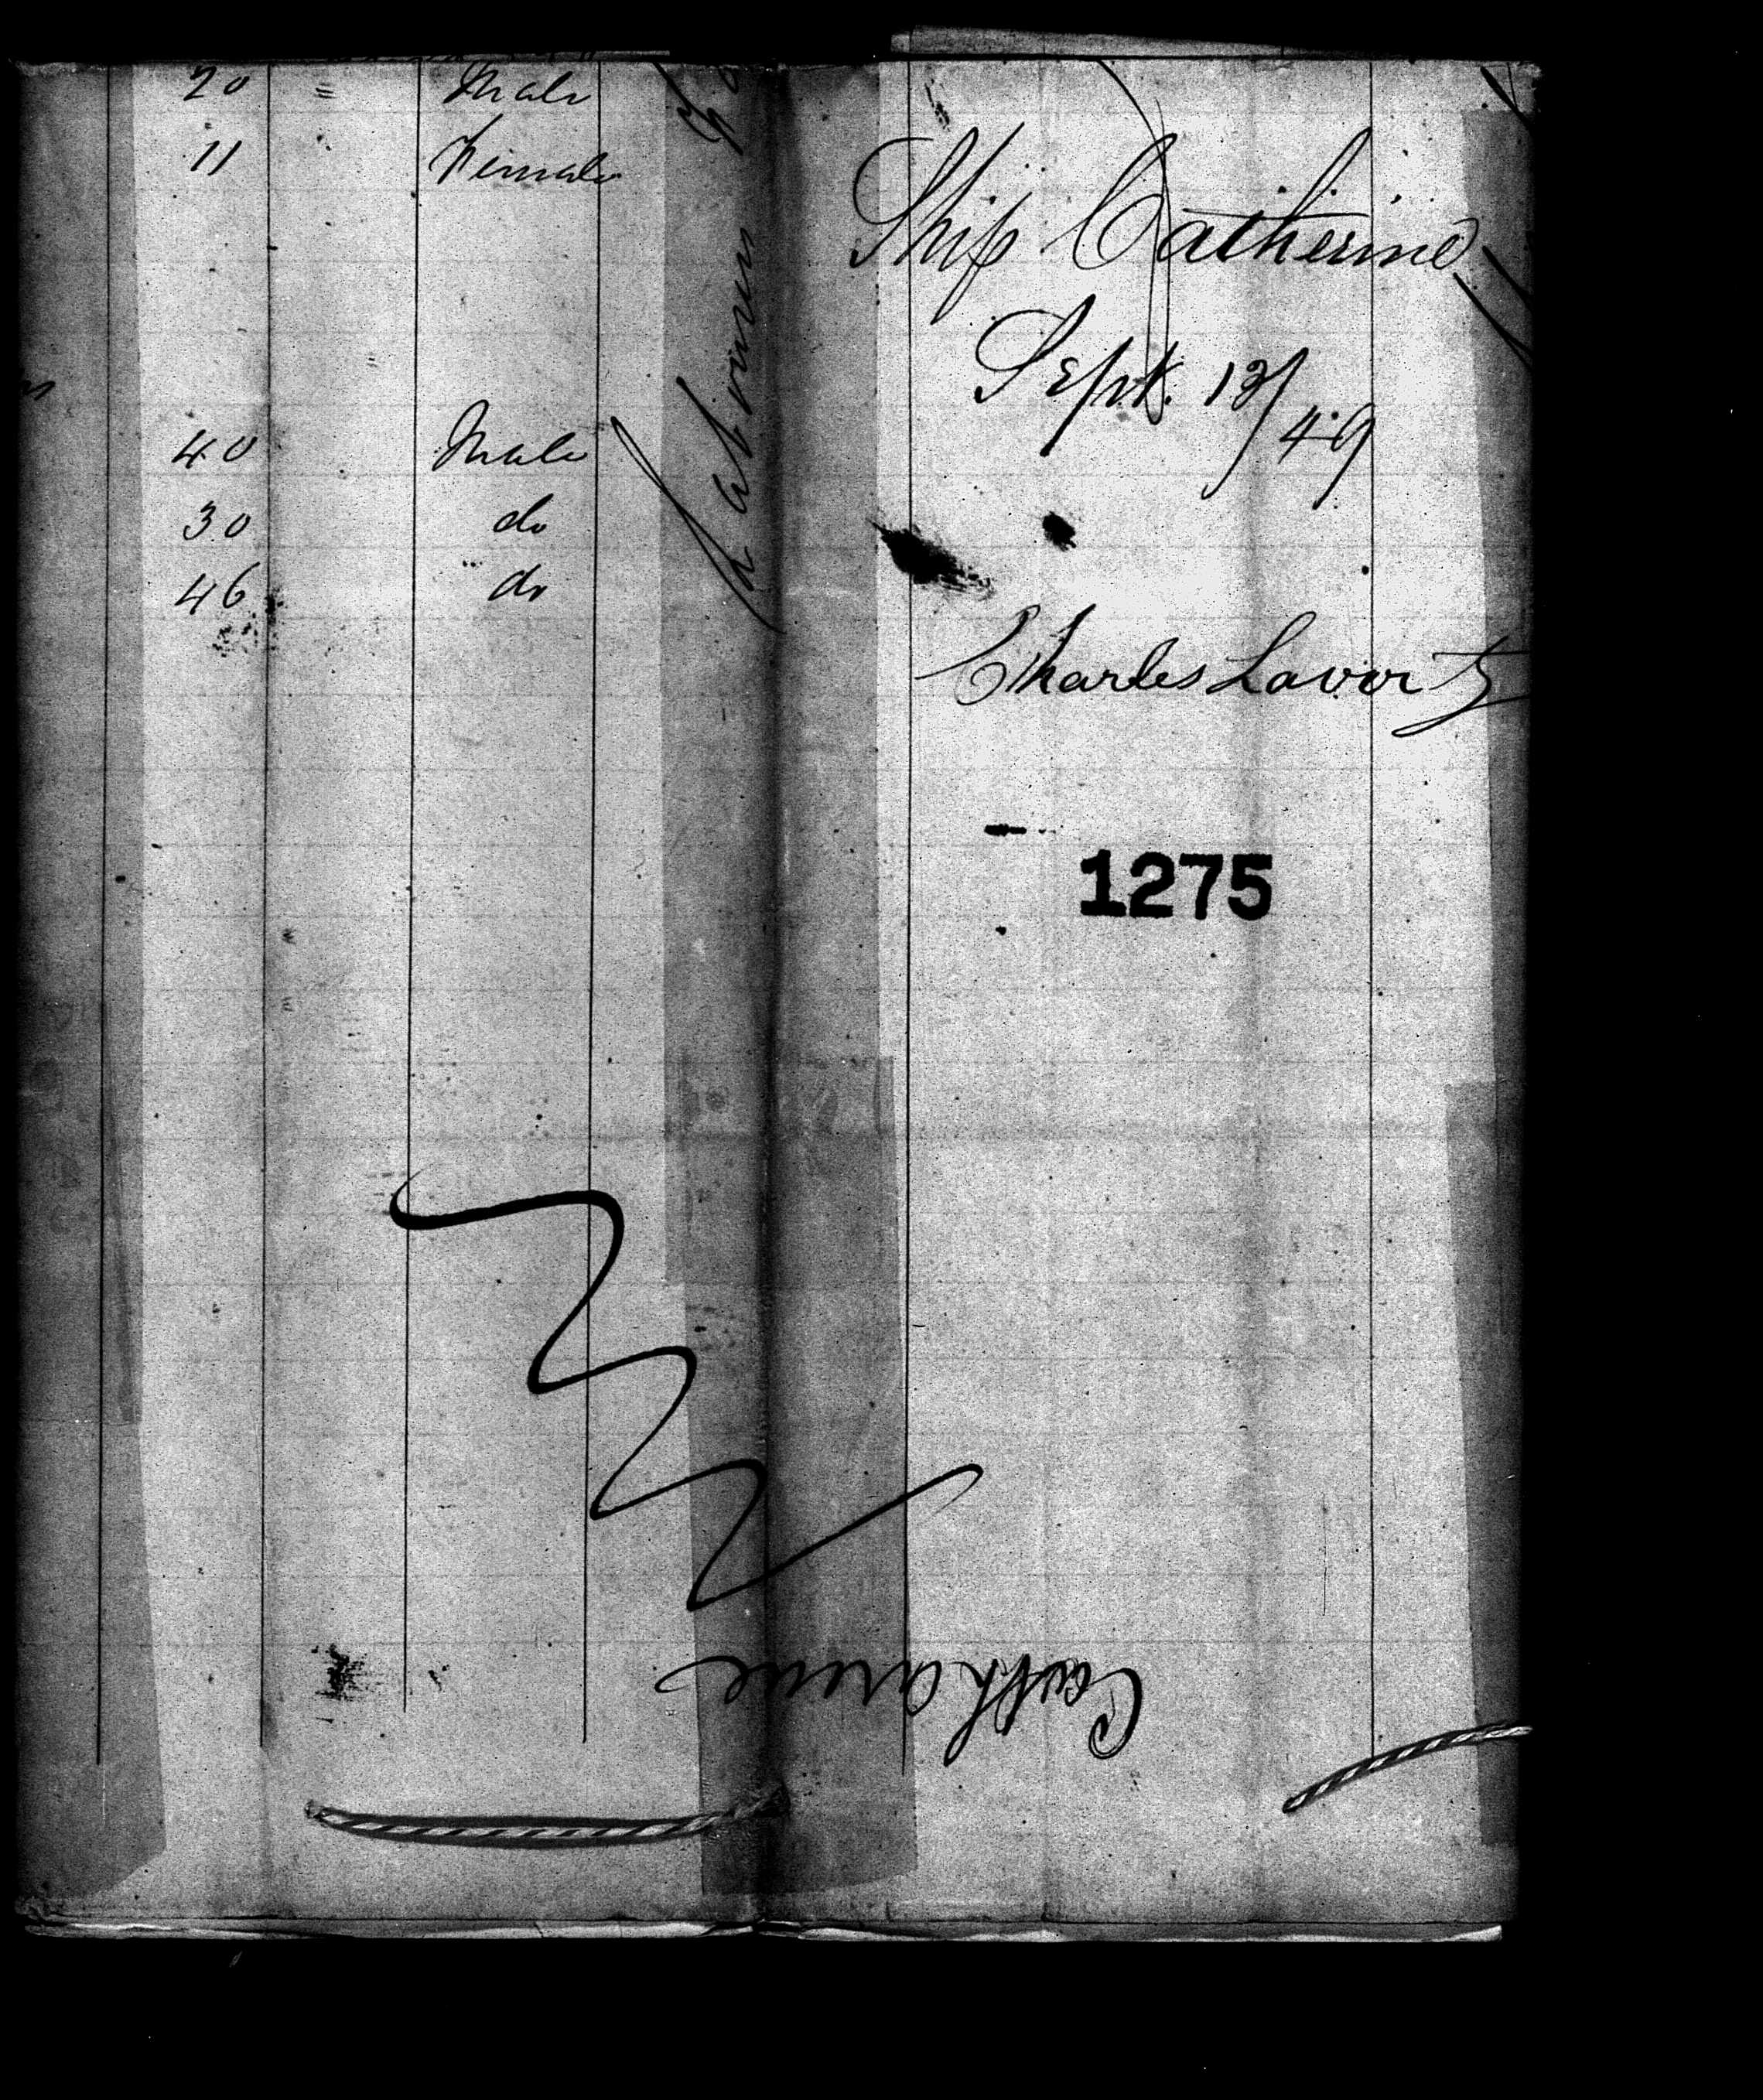 20 = Male
11 " Female
40 Male
30 do
46 " do
Labourer
Ship Catherine
Sept. 13/49
Charles Laverty
1275
Catharine